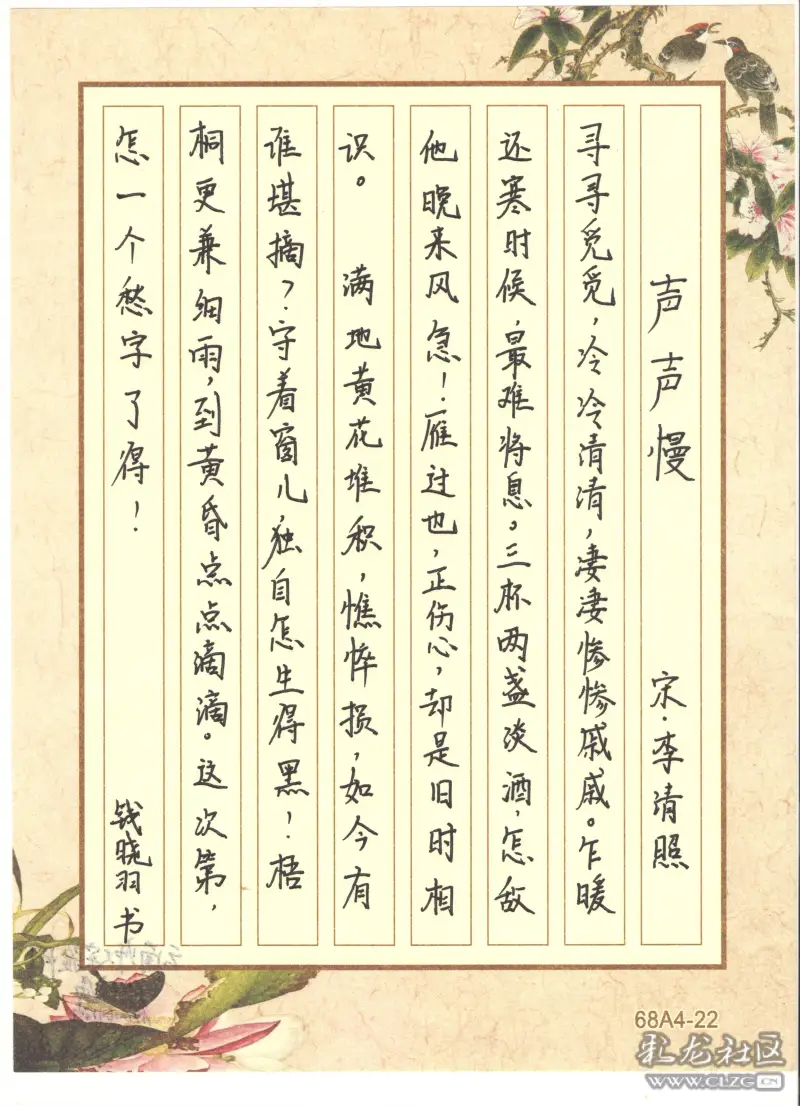 声声慢 宋·李清照
寻寻觅觅，冷冷清清，凄凄惨惨戚戚。乍暖
还寒时候，最难将息。三杯两盏淡酒，怎敌
他晚来风急！雁过也，正伤心，却是旧时相
识。 满地黄花堆积，憔悴损，如今有
谁堪摘？守着窗儿，独自怎生得黑！梧
桐更兼细雨，到黄昏点点滴滴。这次第，
怎一个愁字了得！
钱晓羽书
68A4-22
彩龙社区
www.CLZG.CN